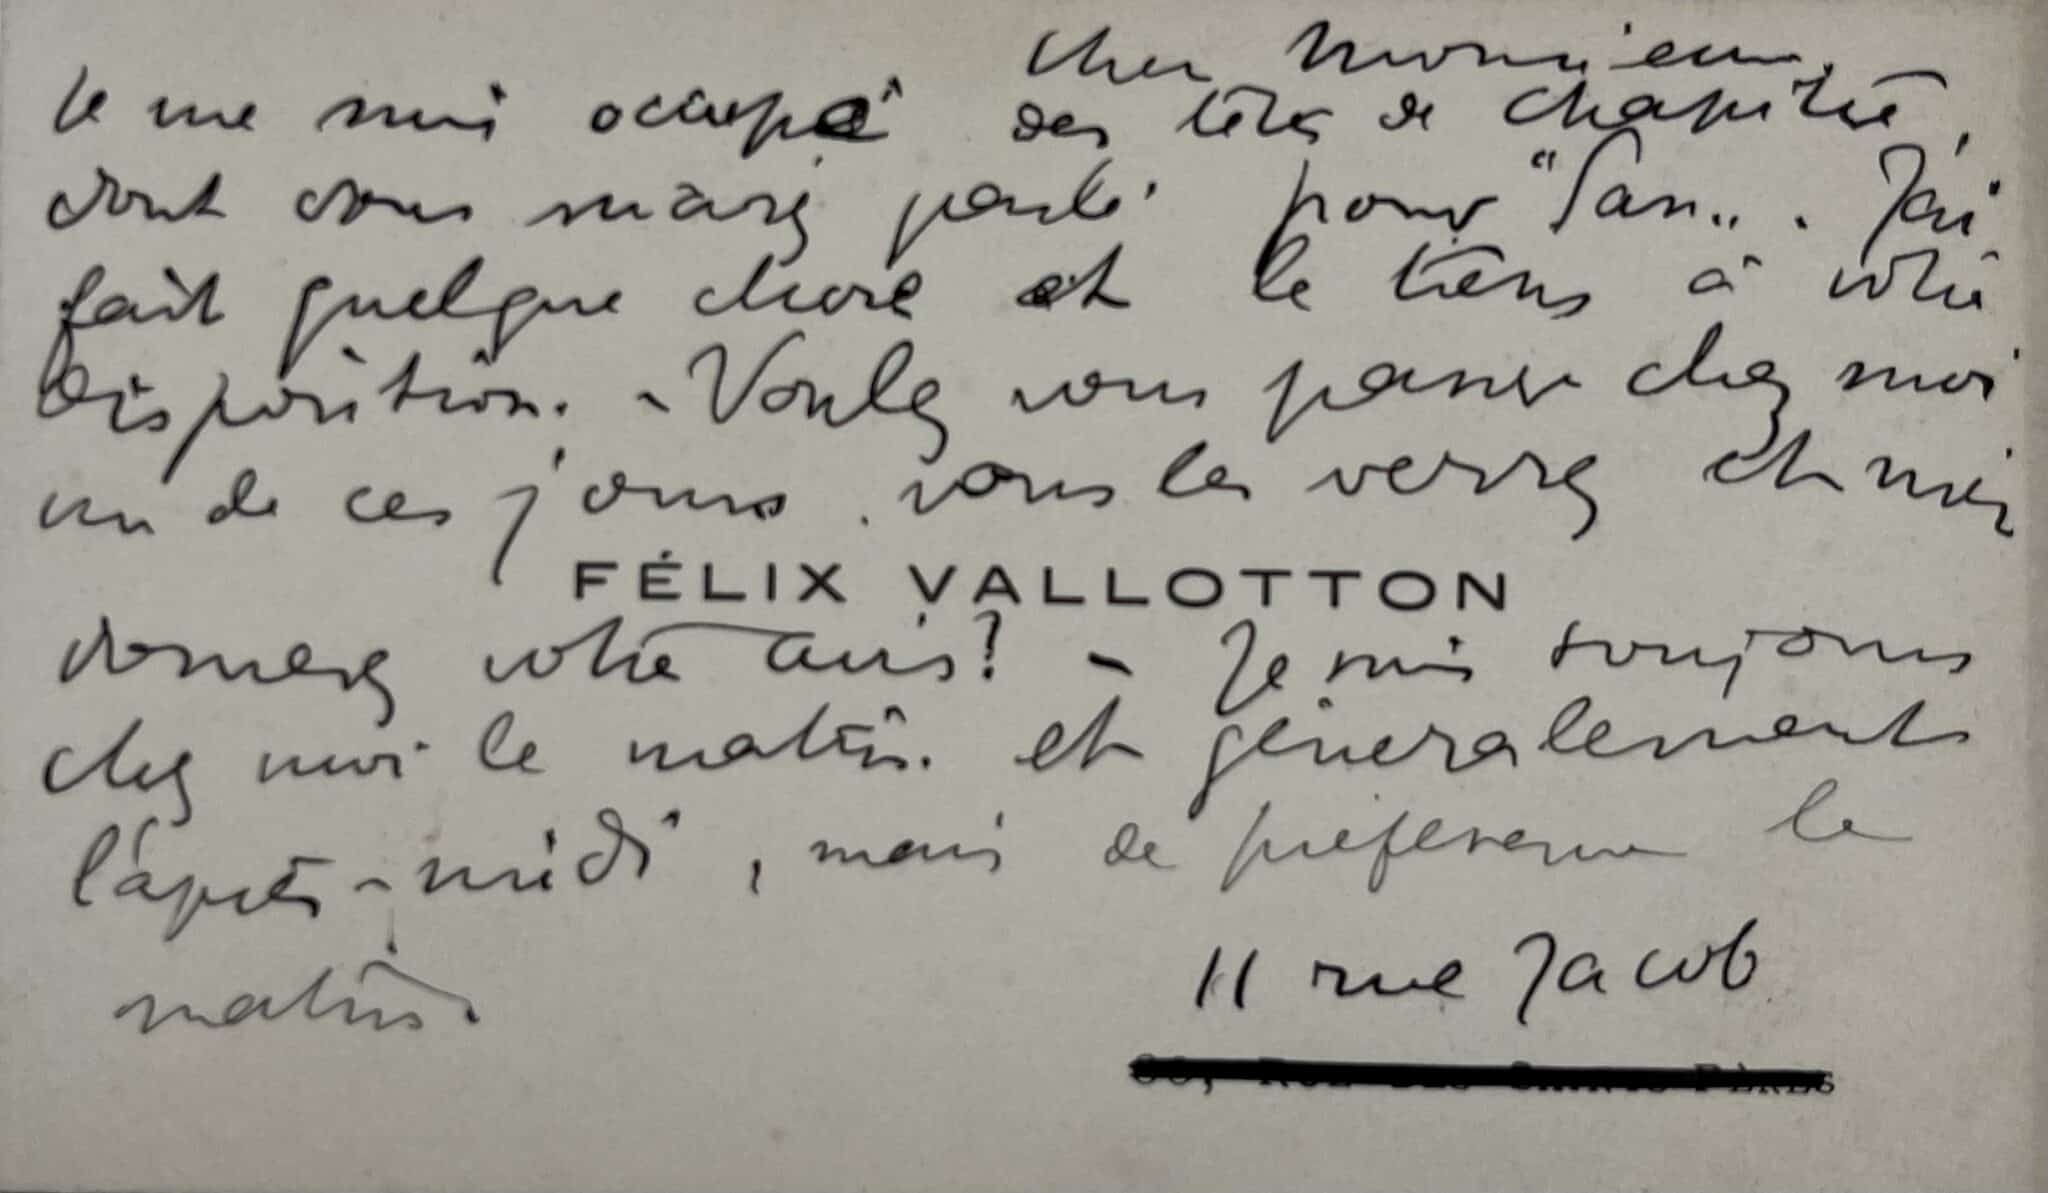 Cher Monsieur,
Je me suis occupé des têtes de chapitre,
dont vous m'avez parlé pour "Pan". J'ai
fait quelque chose et le tiens à votre
disposition. - Voulez vous passer chez moi
un de ces jours, vous les verrez et m'en
FÉLIX VALLOTTON
donnerez votre avis? - Je suis toujours
chez moi le matin. et généralement
l'après-midi, mais de préférence le
matin.
11 rue Jacob
Rue des Saints-Pères